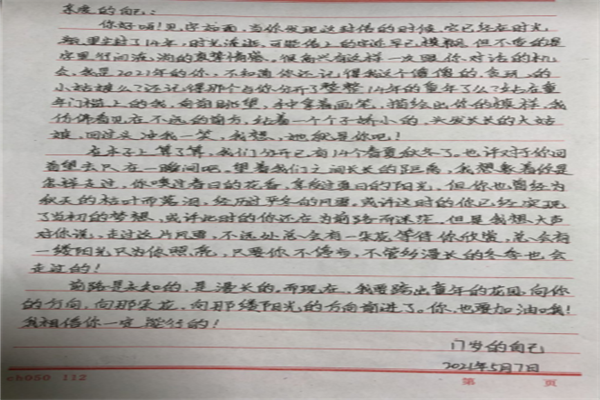 亲爱的自己:
你好呀!见字如面,当你发现这封信的时候,它已经在时光
里封了14年,时光流逝,可能信上的字迹早已模糊,但不变的是
字里行间流淌的真挚情感。很高兴有这样一次跟你对话的机
会,我是2021年的你,不知道你还记得我这个傻傻的,贪玩的
小姑娘么?还记得那个与你分开了整整14年的童年了么?站在童
年门槛上的我,向前眺望,手中拿着画笔,描绘出你的模样,我
仿佛看见在不远的前方,站着一个个子娇小的,头发长长的大姑
娘,回过头冲我一笑,我想,她就是你吧!
在本子上算了算,我们分开已有14个春夏秋冬了。也许对于你回
首望去只在一瞬间吧,望着我们之间长长的距离,我想象着你是
怎样走过,你嗅过春日的花香,享受过夏日的阳光,但你也曾经为
秋天的枯叶而落泪,经历过寒冬的风霜。或许这时的你已经实现
了当初的梦想,或许此时的你还在为前路而迷茫,但是我想大声
对你说,走过这片风霜,不远处总会有一朵花等待你欣赏,总会有
一缕阳光只为你照亮,只要你不停步,不管多漫长的冬季也会
走过的!
前路是未知的,是漫长的,而现在,我要踏出童年的花园,向你
的方向,向那朵花,向那缕阳光的方向前进了。你,也要加油哦!
我相信你一定能行的!
门岁的自己
2021年5月7日
ch050 112
第 页